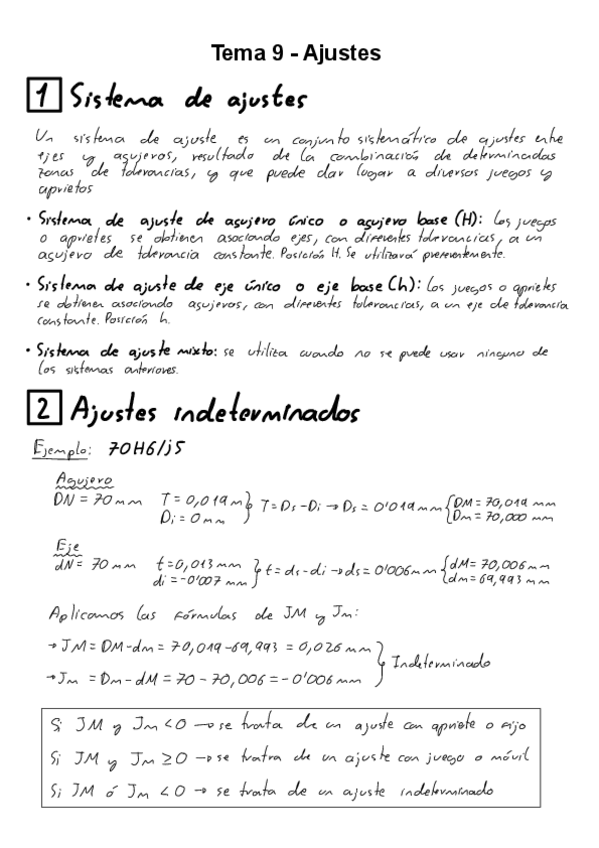 Tema 9 - Ajustes
1 Sistema de ajustes
Un sistema de ajuste es un conjunto sistemático de ajustes entre
ejes y agujeros, resultado de la combinación de determinadas
zonas de tolerancias, y que puede dar lugar a diversos juegos y
aprietos
• Sistema de ajuste de agujero único o agujero base (H): Los juegos
o aprietes se obtienen asociando ejes, con diferentes tolerancias, a un
agujero de tolerancia constante. Posición H. Se utilizará preferentemente.
• Sistema de ajuste de eje único o eje base (h): Los juegos o aprietes
se obtienen asociando agujeros, con diferentes tolerancias, a un eje de tolerancia
constante. Posición h.
• Sistema de ajuste mixto: se utiliza cuando no se puede usar ninguno de
los sistemas anteriores.
2 Ajustes indeterminados
Ejemplo: 70H6/j5
Agujero
DN = 70 mm T = 0,019 m } T = Ds - Di → Ds = 0'019 mm { DM = 70,019 mm
Di = 0 mm Dm = 70,000 mm
Eje
dN = 70 mm t = 0,013 mm } t = ds - di → ds = 0'006 mm { dM = 70,006 mm
di = -0'007 mm dm = 69,993 mm
Aplicamos las fórmulas de JM y Jm:
→ JM = DM - dm = 70,019 - 69,993 = 0,026 mm } Indeterminado
→ Jm = Dm - dM = 70 - 70,006 = -0'006 mm
Si JM y Jm < 0 → se trata de un ajuste con apriete o fijo
Si JM y Jm ≥ 0 → se tratra de un ajuste con juego o móvil
Si JM ó Jm < 0 → se trata de un ajuste indeterminado